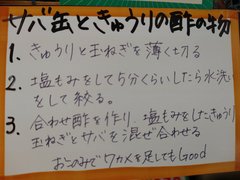 サバ缶ときゅうりの酢の物
1. きゅうりと玉ねぎを薄く切る
2. 塩もみをして5分くらいしたら水洗い
をして絞る。
3. 合わせ酢を作り、塩もみしたきゅうり
玉ねぎとサバを混ぜ合わせる
おこのみでワカメを足してもGood